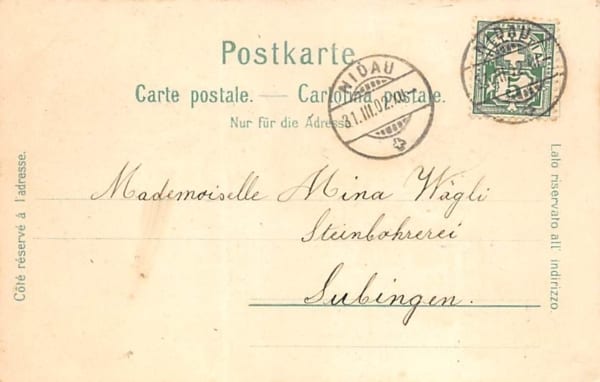 Postkarte
Carte postale. — Cartolina postale.
Nur für die Adresse
NIDAU
31.III.02.
NIDAU
5
Côté réservé à l'adresse.
Lato riservato all' indirizzo.
Mademoiselle Mina Wägli
Steinbohrerei
Subingen.